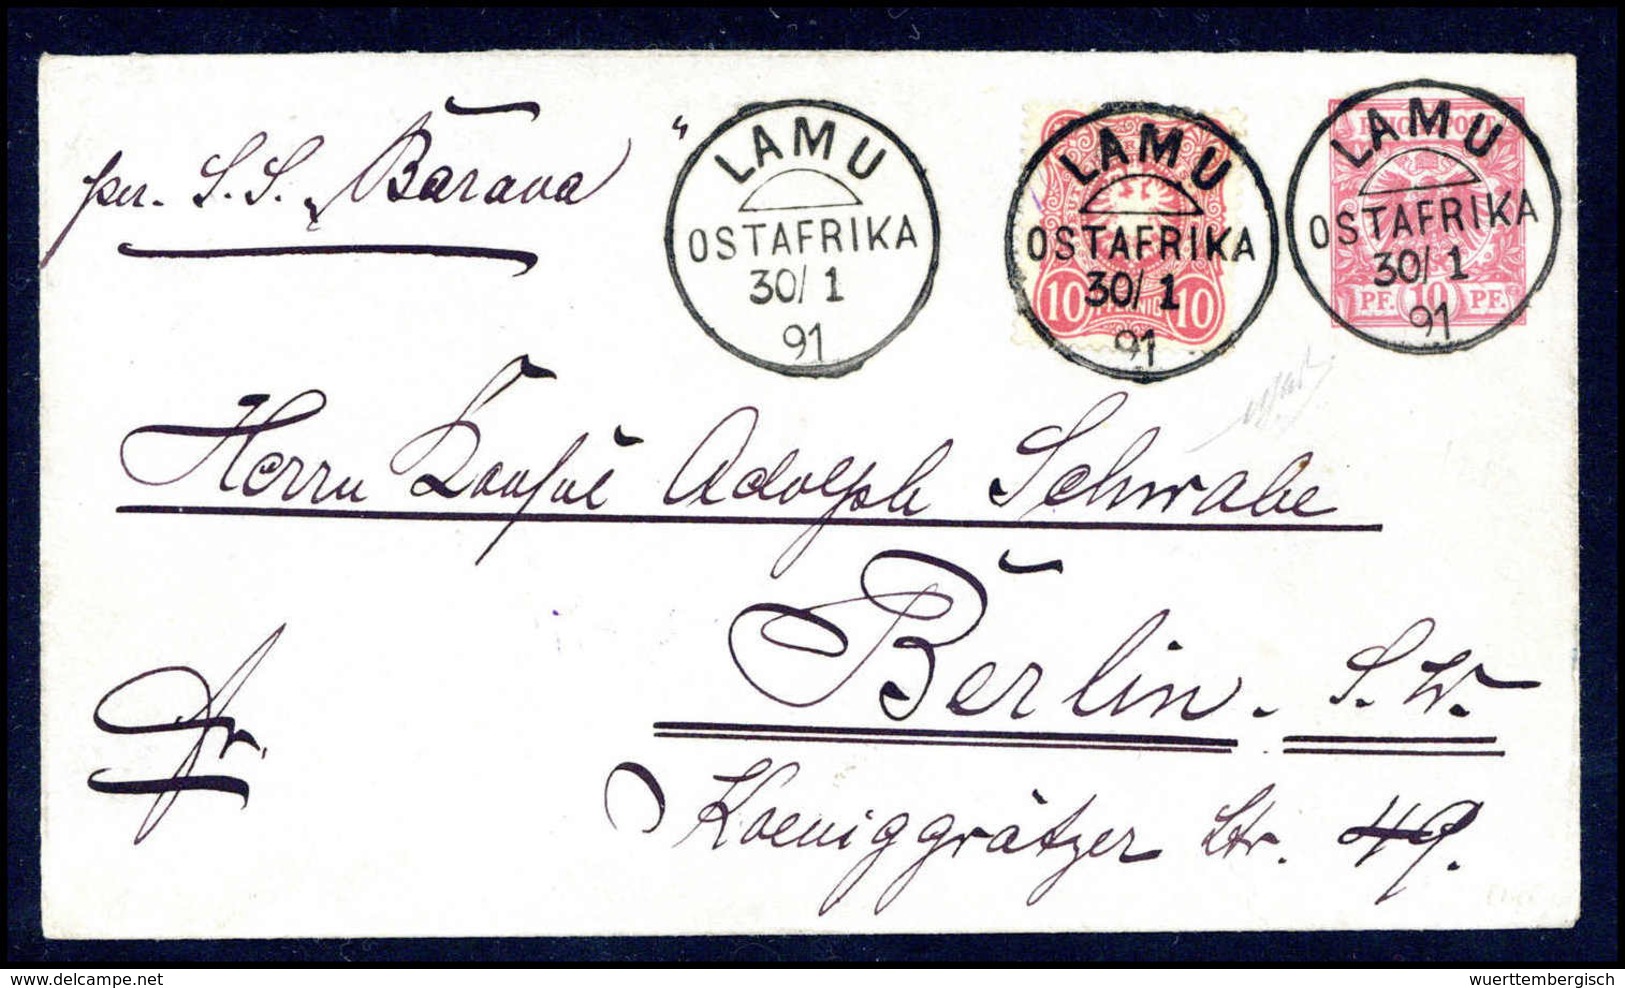 per. S. S. „Barava“
LAMU
OSTAFRIKA
30/ 1
91
LAMU
OSTAFRIKA
30/ 1
91
10 PFENNIG 10
LAMU
OSTAFRIKA
30/ 1
91
REICHSPOST
PF. 10 PF.
Herrn Konsul Adolph Schwabe
Berlin. S. W.
fr.
Koeniggrätzer Str. 49.
delcampe.net
wuerttembergisch